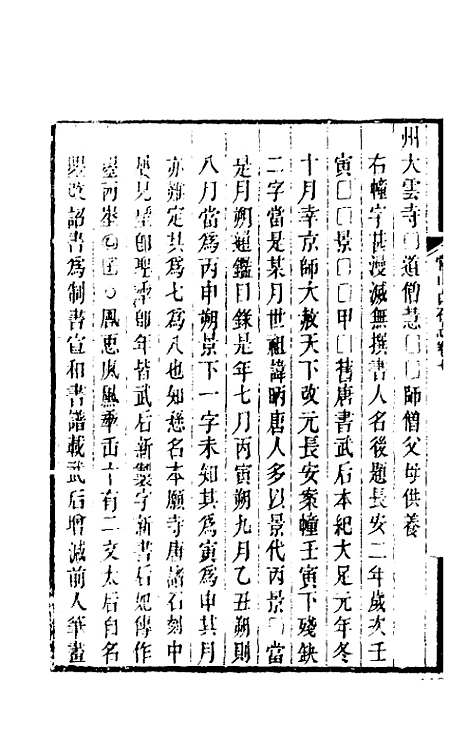 州大雲寺□道僧慧□□師僧父母供養
右幢字甚漫滅無撰書人名後題長安二年歲次壬
寅□□□景□□甲□舊唐書武后本紀大足元年冬
十月幸京師大赦天下改元長安案幢壬寅下殘缺
二字當是某月世祖諱昞唐人多以景代丙景□當
是月朔通鑑目錄是年七月丙寅朔九月乙丑朔則
八月當為丙申朔景下一字未知其為寅為申其月
亦難定其為七為八也知慈名本願寺唐諸石刻中
使見 卽聖 卽年皆武后新製字新書后妃傳作
 有二文太后自名
 改詔書為制書宣和書譜載武后增減前人筆畫